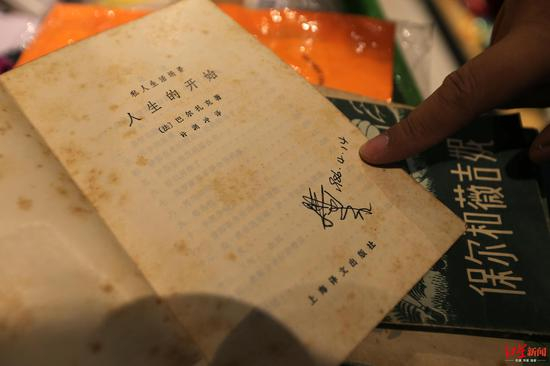 私人生活场景
人生的开始
(法)巴尔扎克著
许渊冲译
'86.4.14
上海译文出版社
保尔和薇吉妮
红星新闻